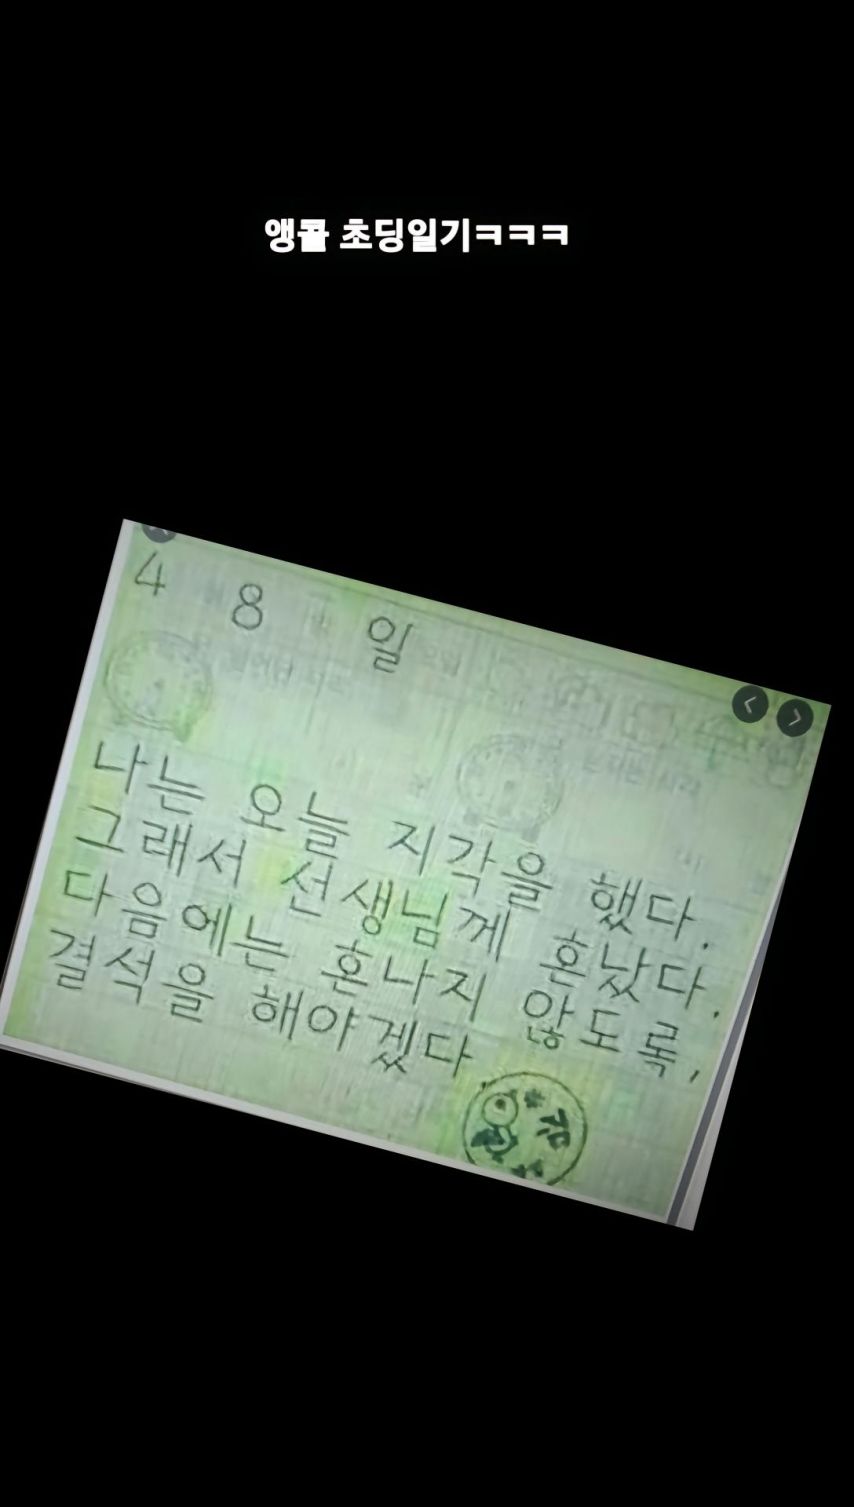 앵콜 초딩일기ㅋㅋㅋ
4 8 일
나는 오늘 지각을 했다.
그래서 선생님께 혼났다.
다음에는 혼나지 않도록,
결석을 해야겠다.